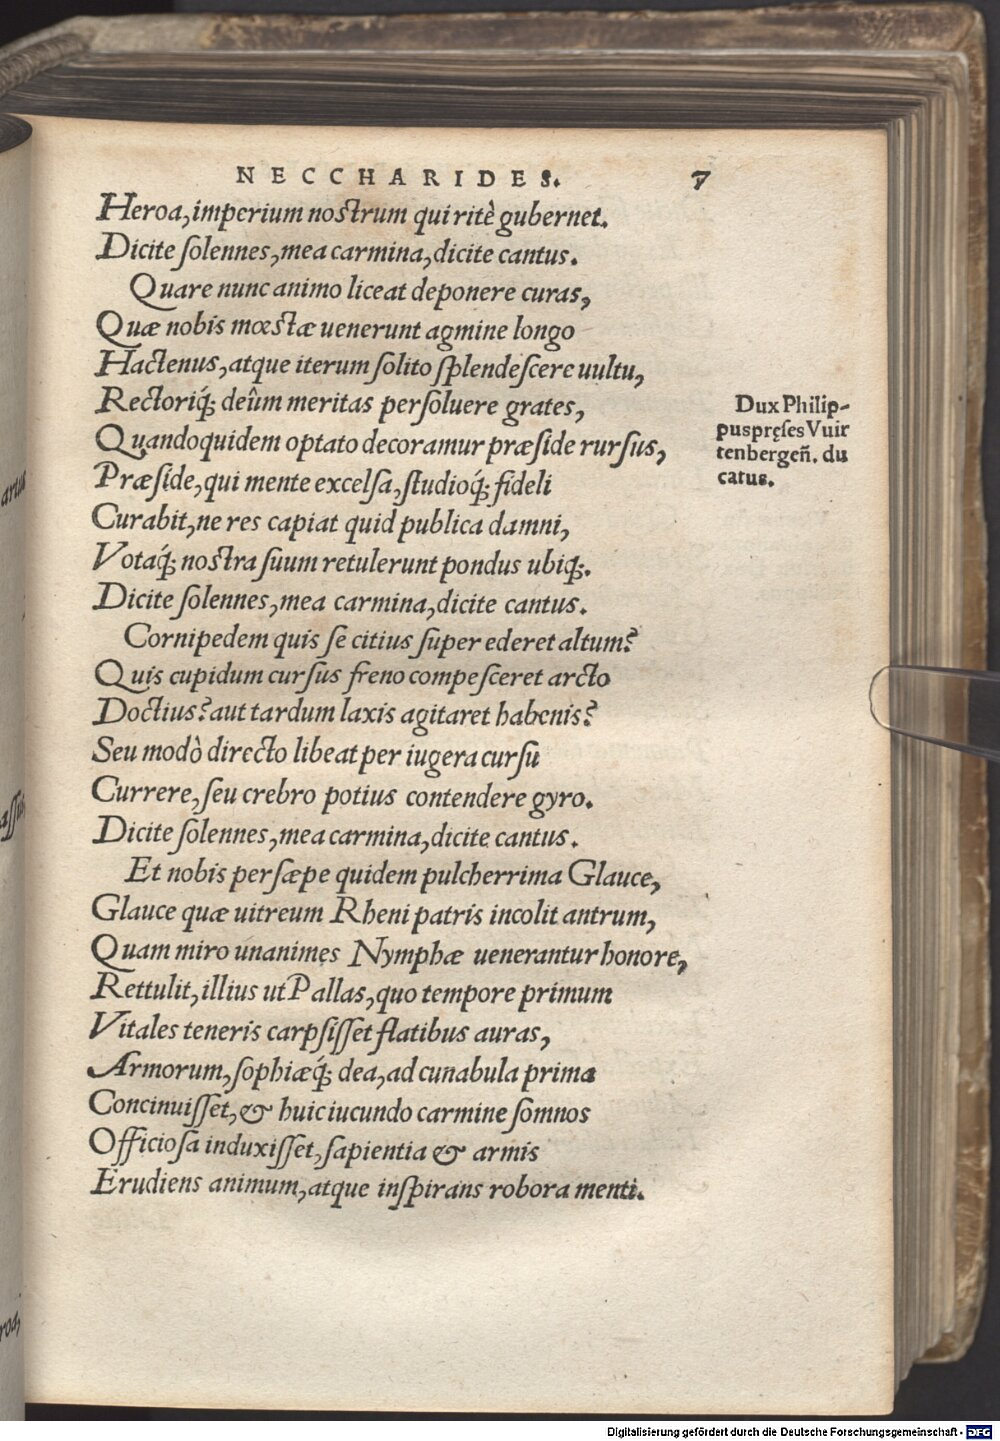 NECCHARIDES. 7
Heroa, imperium nostrum qui ritè gubernet.
Dicite ſolennes, mea carmina, dicite cantus.
Quare nunc animo liceat deponere curas,
Quæ nobis mœstæ uenerunt agmine longo
Hactenus, atque iterum ſolito ſplendeſcere uultu,
Rectoriq́; deûm meritas perſoluere grates,
Quandoquidem optato decoramur præſide rurſus,
Præſide, qui mente excelſa, ſtudioq́; fideli
Curabit, ne res capiat quid publica damni,
Votaq́; nostra ſuum retulerunt pondus ubiq;.
Dicite ſolennes, mea carmina, dicite cantus.
Cornipedem quis ſe citius ſuper ederet altum?
Quis cupidum curſus freno compeſceret arcto
Doctius? aut tardum laxis agitaret habenis?
Seu modò directo libeat per iugera curſu
Currere, ſeu crebro potius contendere gyro.
Dicite ſolennes, mea carmina, dicite cantus.
Et nobis perſæpe quidem pulcherrima Glauce,
Glauce quæ uitreum Rheni patris incolit antrum,
Quam miro unanimes Nymphæ uenerantur honore,
Rettulit, illius ut Pallas, quo tempore primum
Vitales teneris carpſiſſet flatibus auras,
Armorum, ſophiæq́; dea, ad cunabula prima
Concinuiſſet, & huic iucundo carmine ſomnos
Officioſa induxiſſet, ſapientia & armis
Erudiens animum, atque inſpirans robora menti.
Dux Philip-
pus pręſes Vuir
tenbergeñ. du
catus.
Digitalisierung gefördert durch die Deutsche Forschungsgemeinschaft - DFG